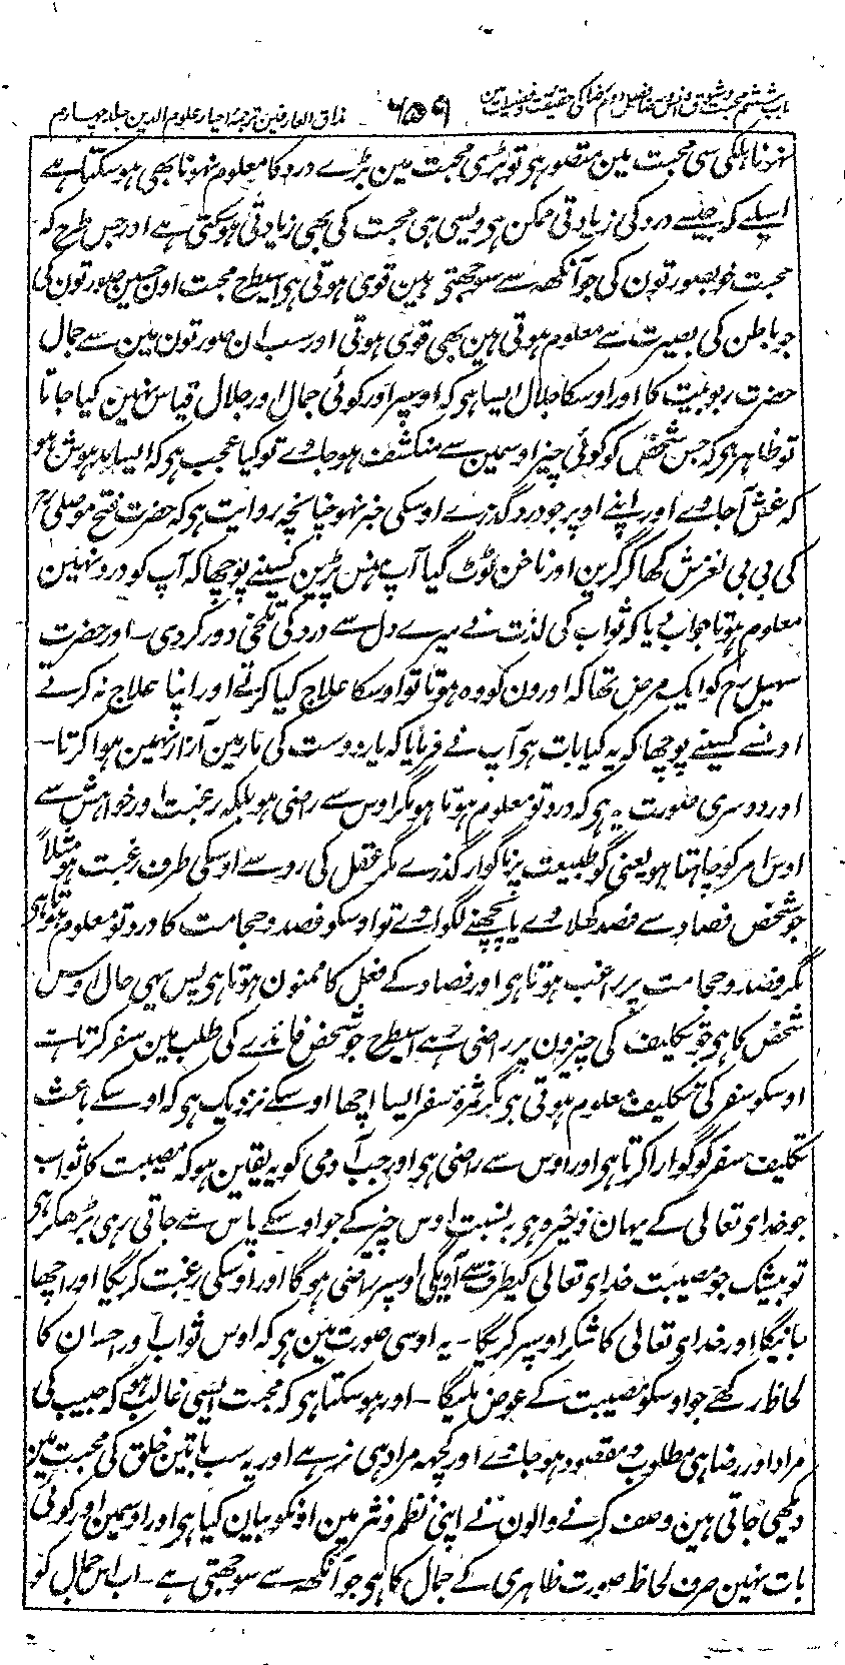 باب ششم محبت و شوق و انس و رضا فصل دوم رضا کی حقیقت و فضیلت مین ۶۵۹ مذاق العارفین ترجمہ احیاء علوم الدین جلد چہارم
نہونا ہلکی سی محبت مین متصور ہی تو بڑی محبت مین بڑے درد کا معلوم نہونا بھی ہو سکتا ہے
اسلیے کہ جیسے درد کی زیادتی ممکن ہی ویسی ہی محبت کی بھی زیادتی ہو سکتی ہے اور جس طرح کہ
محبت خوبصورتون کی جو آنکھ سے سوجھتی ہین قوی ہوتی ہی اسیطرح محبت اون حسین صورتون کی
جو باطن کی بصیرت سے معلوم ہوتی ہین بھی قوی ہوتی اور سب ان صورتون مین سے جمال
حضرت ربوبیت کا اور اوسکا جلال ایسا ہی کہ اوسپر اور کوئی جمال اور جلال قیاس نہین کیا جاتا
تو ظاہر ہی کہ جس شخص کو کوئی چیز اوسمین سے منکشف ہو جاوے تو کیا عجب ہی کہ ایسا مدہوش ہو
کہ غش آجاوے اور اپنے اوپر جو درد گذرے اوسکی خبر نہو چنانچہ روایت ہی کہ حضرت فتح موصلی رح
کی بی بی لغزش کھا کر گرین اور ناخن ٹوٹ گیا آپ ہنس پڑین کسینے پوچھا کہ آپ کو درد نہین
معلوم ہوتا جواب دیا کہ ثواب کی لذت نے میرے دل سے درد کی تلخی دور کردی - اور حضرت
سہیل رح کو ایک مرض تھا کہ اورون کو وہ ہوتا تو اوسکا علاج کیا کرتے اور اپنا علاج نہ کرتے
اونسے کسینے پوچھا کہ یہ کیا بات ہی آپ نے فرمایا کہ یار دوست کی مار مین آزار نہین ہوا کرتا -
اور دوسری صورت یہ ہی کہ درد تو معلوم ہوتا ہو مگر اوس سے راضی ہو بلکہ رغبت اور خواہش سے
اوس امر کو چاہتا ہو یعنی گو طبیعت پر ناگوار گذرے مگر عقل کی رو سے اوسکی طرف رغبت ہو مثلاً
جو شخص فصاد سے فصد کھلاوے یا پچھنے لگواوے تو اوسکو فصد و حجامت کا درد تو معلوم ہوتا ہی
مگر فصد و حجامت پر راغب ہوتا ہی اور فصاد کے فعل کا ممنون ہوتا ہی پس یہی حال اوس
شخص کا ہی جو تکلیف کی چیزون پر راضی ہے اسیطرح جو شخص فائدے کی طلب مین سفر کرتا ہے
اوسکو سفر کی تکلیف معلوم ہوتی ہی مگر ثمرۂ سفر ایسا اچھا اوسکے نزدیک ہی کہ اوسکے باعث
تکلیف سفر گوارا کرتا ہی اور اوس سے راضی ہی اور جب آدمی کو یہ یقین ہو کہ مصیبت کا ثواب
جو خدای تعالی کے یہان ذخیرہ ہی بہ نسبت اوس چیز کے جو اوسکے پاس سے جاتی رہی بڑھکر ہی
تو بیشک جو مصیبت خدای تعالی کیطرف سے آویگی اوسپر راضی ہوگا اور اوسکی رغبت کریگا اور اچھا
جانیگا اور خدای تعالی کا شکر اوسپر کریگا - یہ اوسی صورت مین ہی کہ اوس ثواب اور احسان کا
لحاظ رکھے جو اوسکو مصیبت کے عوض ملیگا - اور ہو سکتا ہی کہ محبت ایسی غالب ہو کہ حبیب کی
مراد اور رضا ہی مطلوب و مقصود ہو جاوے اور کچھہ مراد ہی نرہے اور یہ سب باتین خلق کی محبت مین
دیکھی جاتی ہین وصف کرنے والون نے اپنی نظم و نثر مین اونکو بیان کیا ہی اور اوسمین اور کوئی
بات نہین صرف لحاظ صورت ظاہری کے جمال کا ہی جو آنکھ سے سوجھتی ہے - اب اس جمال کو